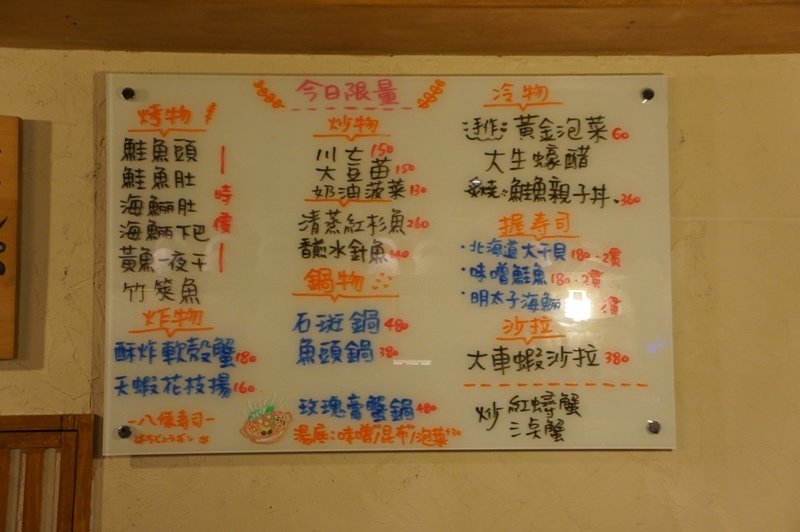 今日限量
烤物
鮭魚頭
鮭魚肚
海鱺肚
海鱺下巴
黃魚一夜干
竹筴魚
時價
炸物
酥炸軟殼蟹180
天蝦花枝揚160
一八條壽司一
炒物
川七150
大豆苗150
奶油菠菜130
清蒸紅杉魚260
香煎水針魚
鍋物
石斑鍋480
魚頭鍋380
玫瑰膏蟹鍋480
湯底:味噌/昆布/泡菜+30
冷物
手作黃金泡菜60
大生蠔醋
炙燒鮭魚親子丼360
握壽司
·北海道大干貝180·2貫
·味噌鮭魚180·2貫
·明太子海鱺 貫
沙拉
大車蝦沙拉380
炒 紅蟳蟹
三點蟹